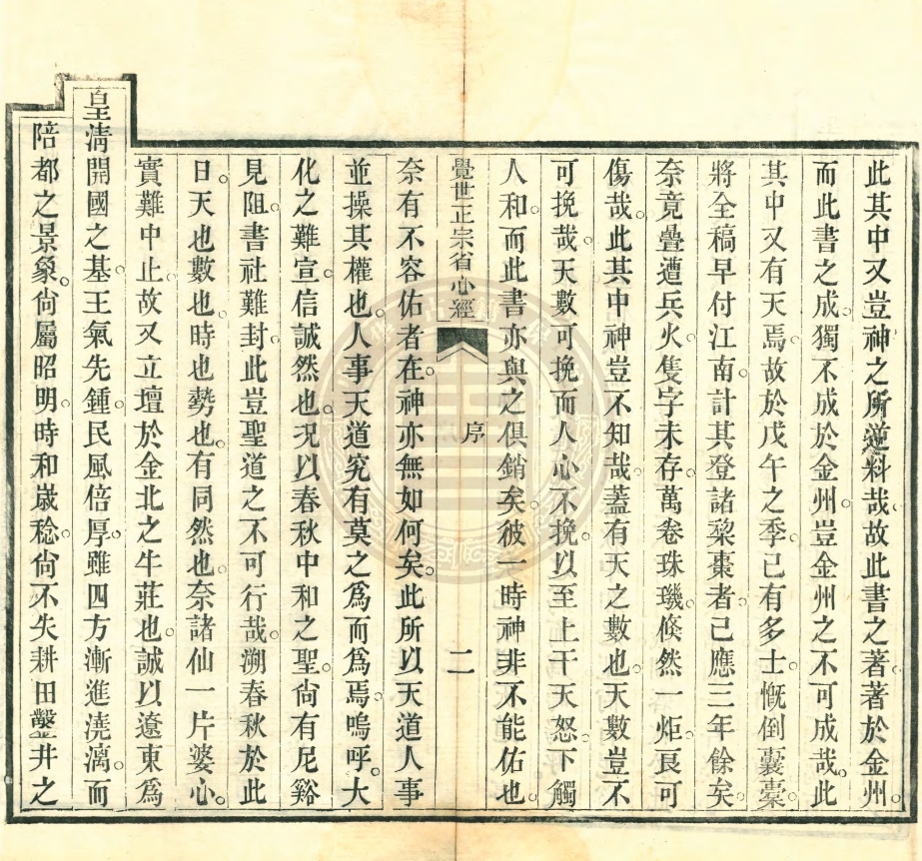 此其中又豈神之所逆料哉故此書之著著於金州
而此書之成獨不成於金州豈金州之不可成哉此
其中又有天焉故於戊午之季已有多士慨倒囊槖
將全稿早付江南計其登諸梨棗者已應三年餘矣
奈竟疊遭兵火隻字未存萬卷珠璣倐然一炬良可
傷哉此其中神豈不知哉蓋有天之數也天數豈不
可挽哉天數可挽而人心不挽以至上干天怒下觸
人和而此書亦與之俱銷矣彼一時神非不能佑也
覺世正宗省心經 序 二
奈有不容佑者在神亦無如何矣此所以天道人事
並操其權也人事天道究有莫之為而為焉嗚呼大
化之難宣信誠然也况以春秋中和之聖尙有尼谿
見阻書社難封此豈聖道之不可行哉溯春秋於此
日天也數也時也勢也有同然也奈諸仙一片婆心
實難中止故又立壇於金北之牛莊也誠以遼東為
皇淸開國之基王氣先鍾民風倍厚雖四方漸進澆漓而
陪都之景象尙屬昭明時和嵗稔尙不失耕田鑿井之